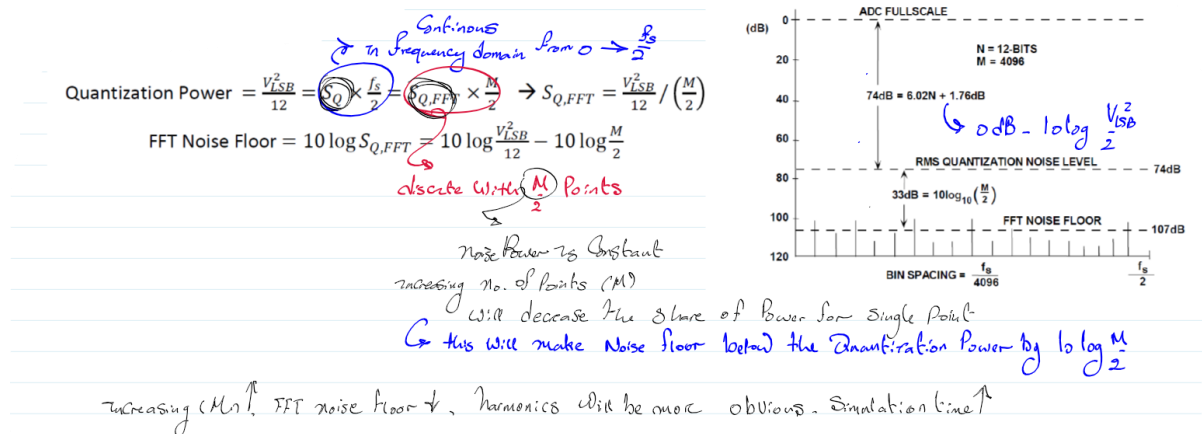 Continous
In frequency domain from 0 → fs/2
Quantization Power = V²LSB/12 = SQ × fs/2 = SQ,FFT × M/2 → SQ,FFT = V²LSB/12 / (M/2)
FFT Noise Floor = 10 log SQ,FFT = 10 log V²LSB/12 − 10 log M/2
discrete with M/2 Points
noise Power is Constant
increasing no. of Points (M)
will decrease the share of Power for single point
this will make Noise floor below the Quantization Power by 10 log M/2
increasing (M)↑, FFT noise floor ↓, harmonics will be more obvious. Simulation time↑
ADC FULLSCALE
(dB)
0
20
40
60
80
100
120
N = 12-BITS
M = 4096
74dB = 6.02N + 1.76dB
0dB - 10log V²LSB/2
RMS QUANTIZATION NOISE LEVEL
74dB
33dB = 10log10(M/2)
FFT NOISE FLOOR
107dB
BIN SPACING = fs/4096
fs/2